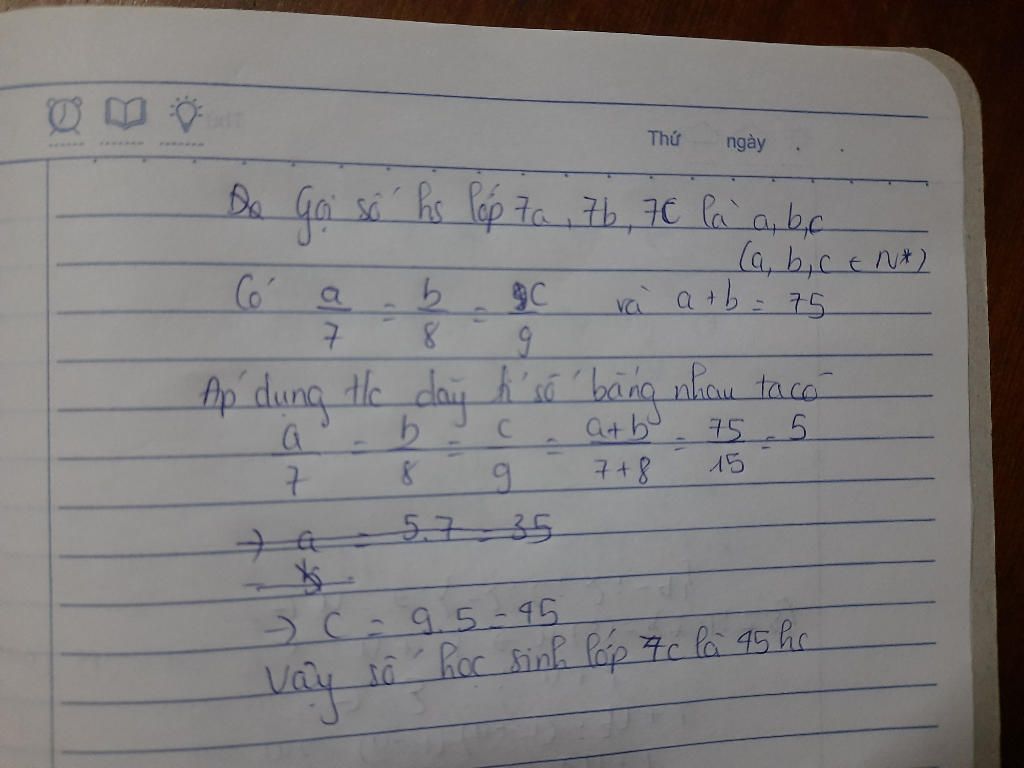 Thứ ngày . .
Gọi số hs lớp 7a, 7b, 7C là a, b, c
(a, b, c ∈ N*)
Có a/7 = b/8 = C/9 và a + b = 75
Áp dụng t/c dãy tỉ số bằng nhau ta có
a/7 = b/8 = c/9 = a+b/7+8 = 75/15 = 5
→ a = 5.7 = 35
→ C = 9.5 = 45
Vậy số học sinh lớp 7c là 45 hs